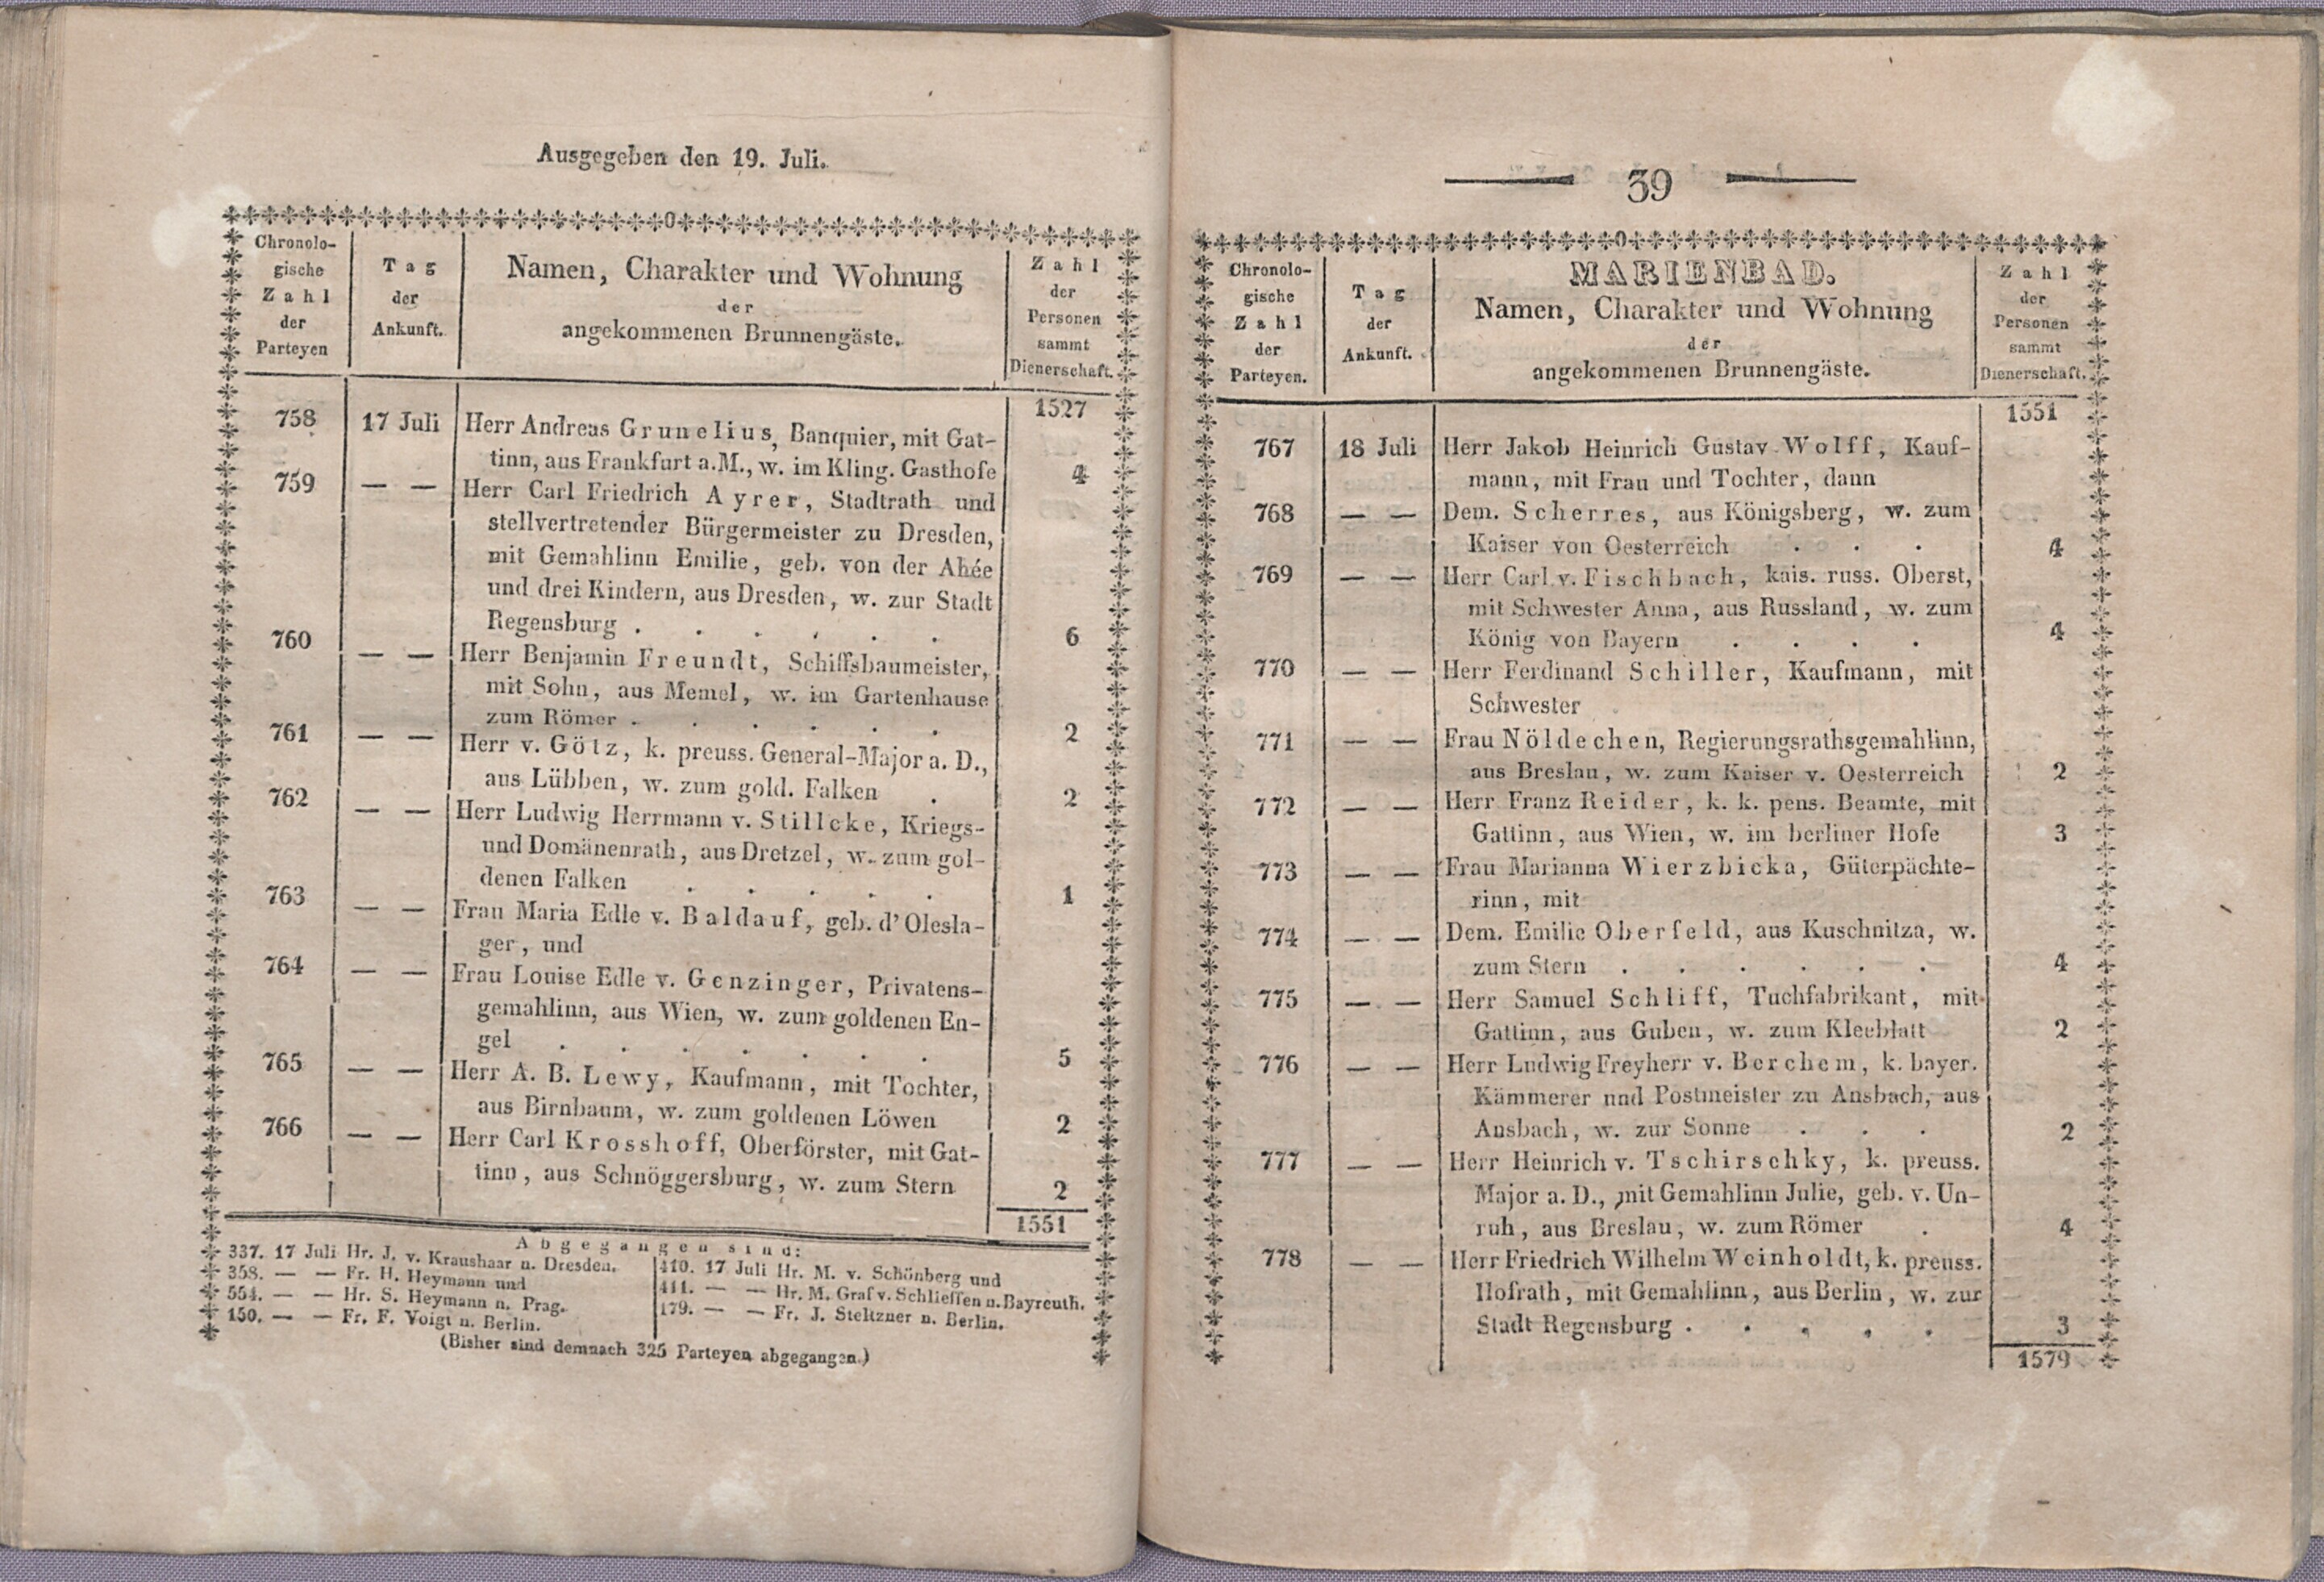 Ausgegeben den 19. Juli.
Chronolo-
gische
Zahl
der
Parteyen
Tag
der
Ankunft.
Namen, Charakter und Wohnung
der
angekommenen Brunnengäste.
Zahl
der
Personen
sammt
Dienerschaft.
1527
758 17 Juli Herr Andreas Grunelius, Banquier, mit Gat-
tinn, aus Frankfurt a.M., w. im Kling. Gasthofe 4
759 — — Herr Carl Friedrich Ayrer, Stadtrath und
stellvertretender Bürgermeister zu Dresden,
mit Gemahlinn Emilie, geb. von der Ahée
und drei Kindern, aus Dresden, w. zur Stadt
Regensburg . . . . . . 6
760 — — Herr Benjamin Freundt, Schiffsbaumeister,
mit Sohn, aus Memel, w. im Gartenhause
zum Römer . . . . . . 2
761 — — Herr v. Götz, k. preuss. General-Major a. D.,
aus Lübben, w. zum gold. Falken . 2
762 — — Herr Ludwig Herrmann v. Stillcke, Kriegs-
und Domänenrath, aus Dretzel, w. zum gol-
denen Falken . . . . . 1
763 — — Frau Maria Edle v. Baldauf, geb. d'Olesla-
ger, und
764 — — Frau Louise Edle v. Genzinger, Privatens-
gemahlinn, aus Wien, w. zum goldenen En-
gel . . . . . . . 5
765 — — Herr A. B. Lewy, Kaufmann, mit Tochter,
aus Birnbaum, w. zum goldenen Löwen 2
766 — — Herr Carl Krosshoff, Oberförster, mit Gat-
tinn, aus Schnöggersburg, w. zum Stern 2
1551
Abgegangen sind:
337. 17 Juli Hr. J. v. Kraushaar n. Dresden.
358. — — Fr. H. Heymann und
554. — — Hr. S. Heymann n. Prag.
150. — — Fr. F. Voigt n. Berlin.
410. 17 Juli Hr. M. v. Schönberg und
411. — — Hr. M. Graf v. Schlieffen n. Bayreuth.
179. — — Fr. J. Steltzner n. Berlin.
(Bisher sind demnach 325 Parteyen abgegangen.)
39
Chronolo-
gische
Zahl
der
Parteyen.
Tag
der
Ankunft.
MARIENBAD.
Namen, Charakter und Wohnung
der
angekommenen Brunnengäste.
Zahl
der
Personen
sammt
Dienerschaft.
1551
767 18 Juli Herr Jakob Heinrich Gustav Wolff, Kauf-
mann, mit Frau und Tochter, dann
768 — — Dem. Scherres, aus Königsberg, w. zum
Kaiser von Oesterreich . . . 4
769 — — Herr Carl v. Fischbach, kais. russ. Oberst,
mit Schwester Anna, aus Russland, w. zum
König von Bayern . . . . 4
770 — — Herr Ferdinand Schiller, Kaufmann, mit
Schwester
771 — — Frau Nöldechen, Regierungsrathsgemahlinn,
aus Breslau, w. zum Kaiser v. Oesterreich 2
772 — — Herr Franz Reider, k. k. pens. Beamte, mit
Gattinn, aus Wien, w. im berliner Hofe 3
773 — — Frau Marianna Wierzbicka, Güterpächte-
rinn, mit
774 — — Dem. Emilie Oberfeld, aus Kuschnitza, w.
zum Stern . . . . . . 4
775 — — Herr Samuel Schliff, Tuchfabrikant, mit
Gattinn, aus Guben, w. zum Kleeblatt 2
776 — — Herr Ludwig Freyherr v. Berchem, k. bayer.
Kämmerer und Postmeister zu Ansbach, aus
Ansbach, w. zur Sonne . . . 2
777 — — Herr Heinrich v. Tschirschky, k. preuss.
Major a. D., mit Gemahlinn Julie, geb. v. Un-
ruh, aus Breslau, w. zum Römer . 4
778 — — Herr Friedrich Wilhelm Weinholdt, k. preuss.
Hofrath, mit Gemahlinn, aus Berlin, w. zur
Stadt Regensburg . . . . . 3
1579